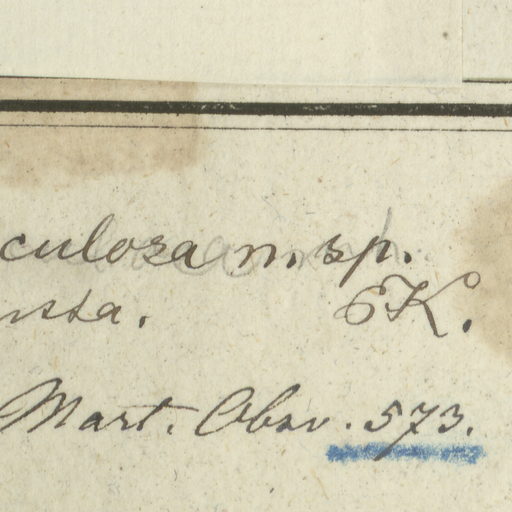 culosa n. sp.
ussa. OK.
Mart. Obsv. 573.